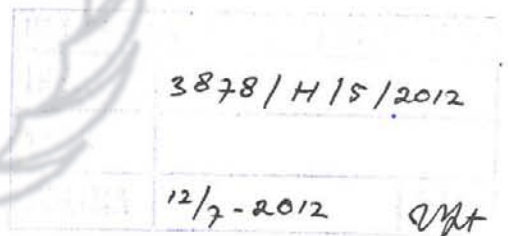 3878/H/5/2012
12/7-2012